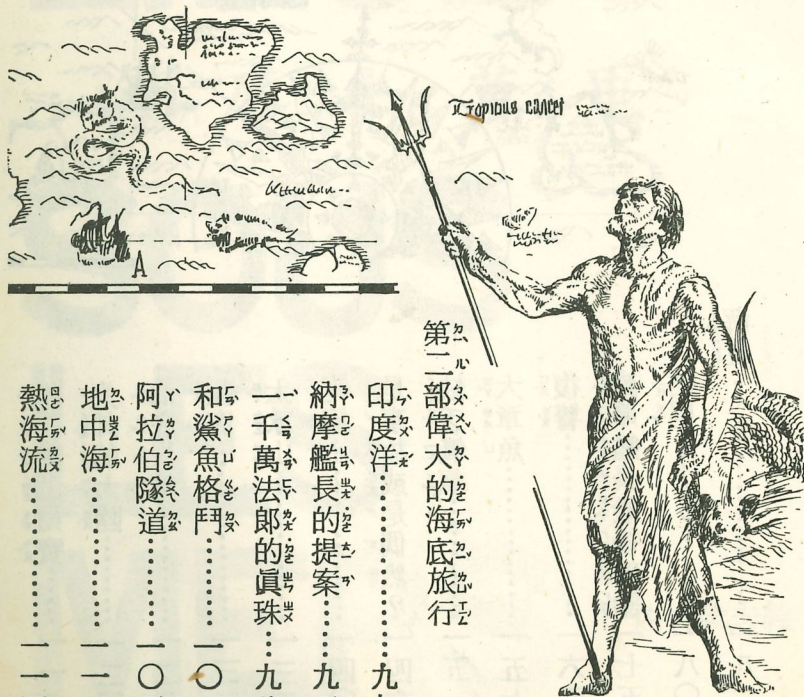 Tropicus cancer
A
第二部偉大的海底旅行
印度洋……………九
納摩艦長的提案……九
一千萬法郎的眞珠…九
和鯊魚格鬥…………一〇
阿拉伯隧道…………一〇
地中海………………一一
熱海流………………一一